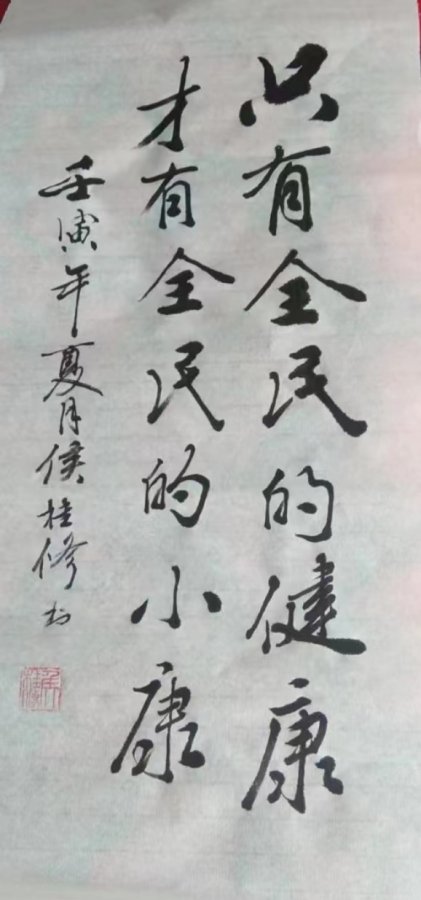 只有全民的健康
才有全民的小康
壬寅年夏月侯桂修书